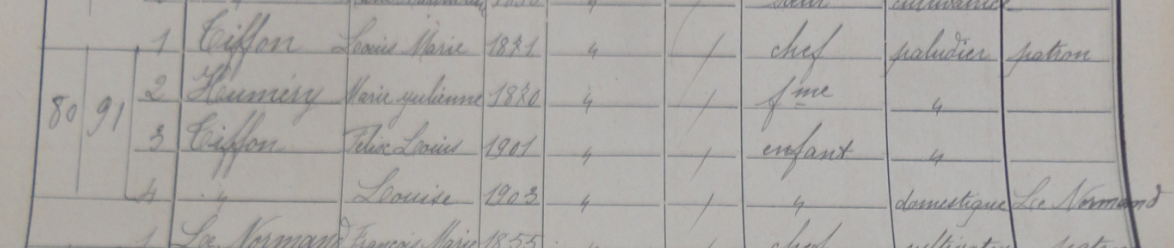 1 Tiffon Louis Marie 1871 " / chef paludier patron
80 91 2 Huméry Marie Julienne 1870 " / fme "
3 Tiffon Felix Louis 1901 " / enfant "
4 " Louise 1903 " / " domestique Le Normand
1 Le Normand François Marie 1855 chef